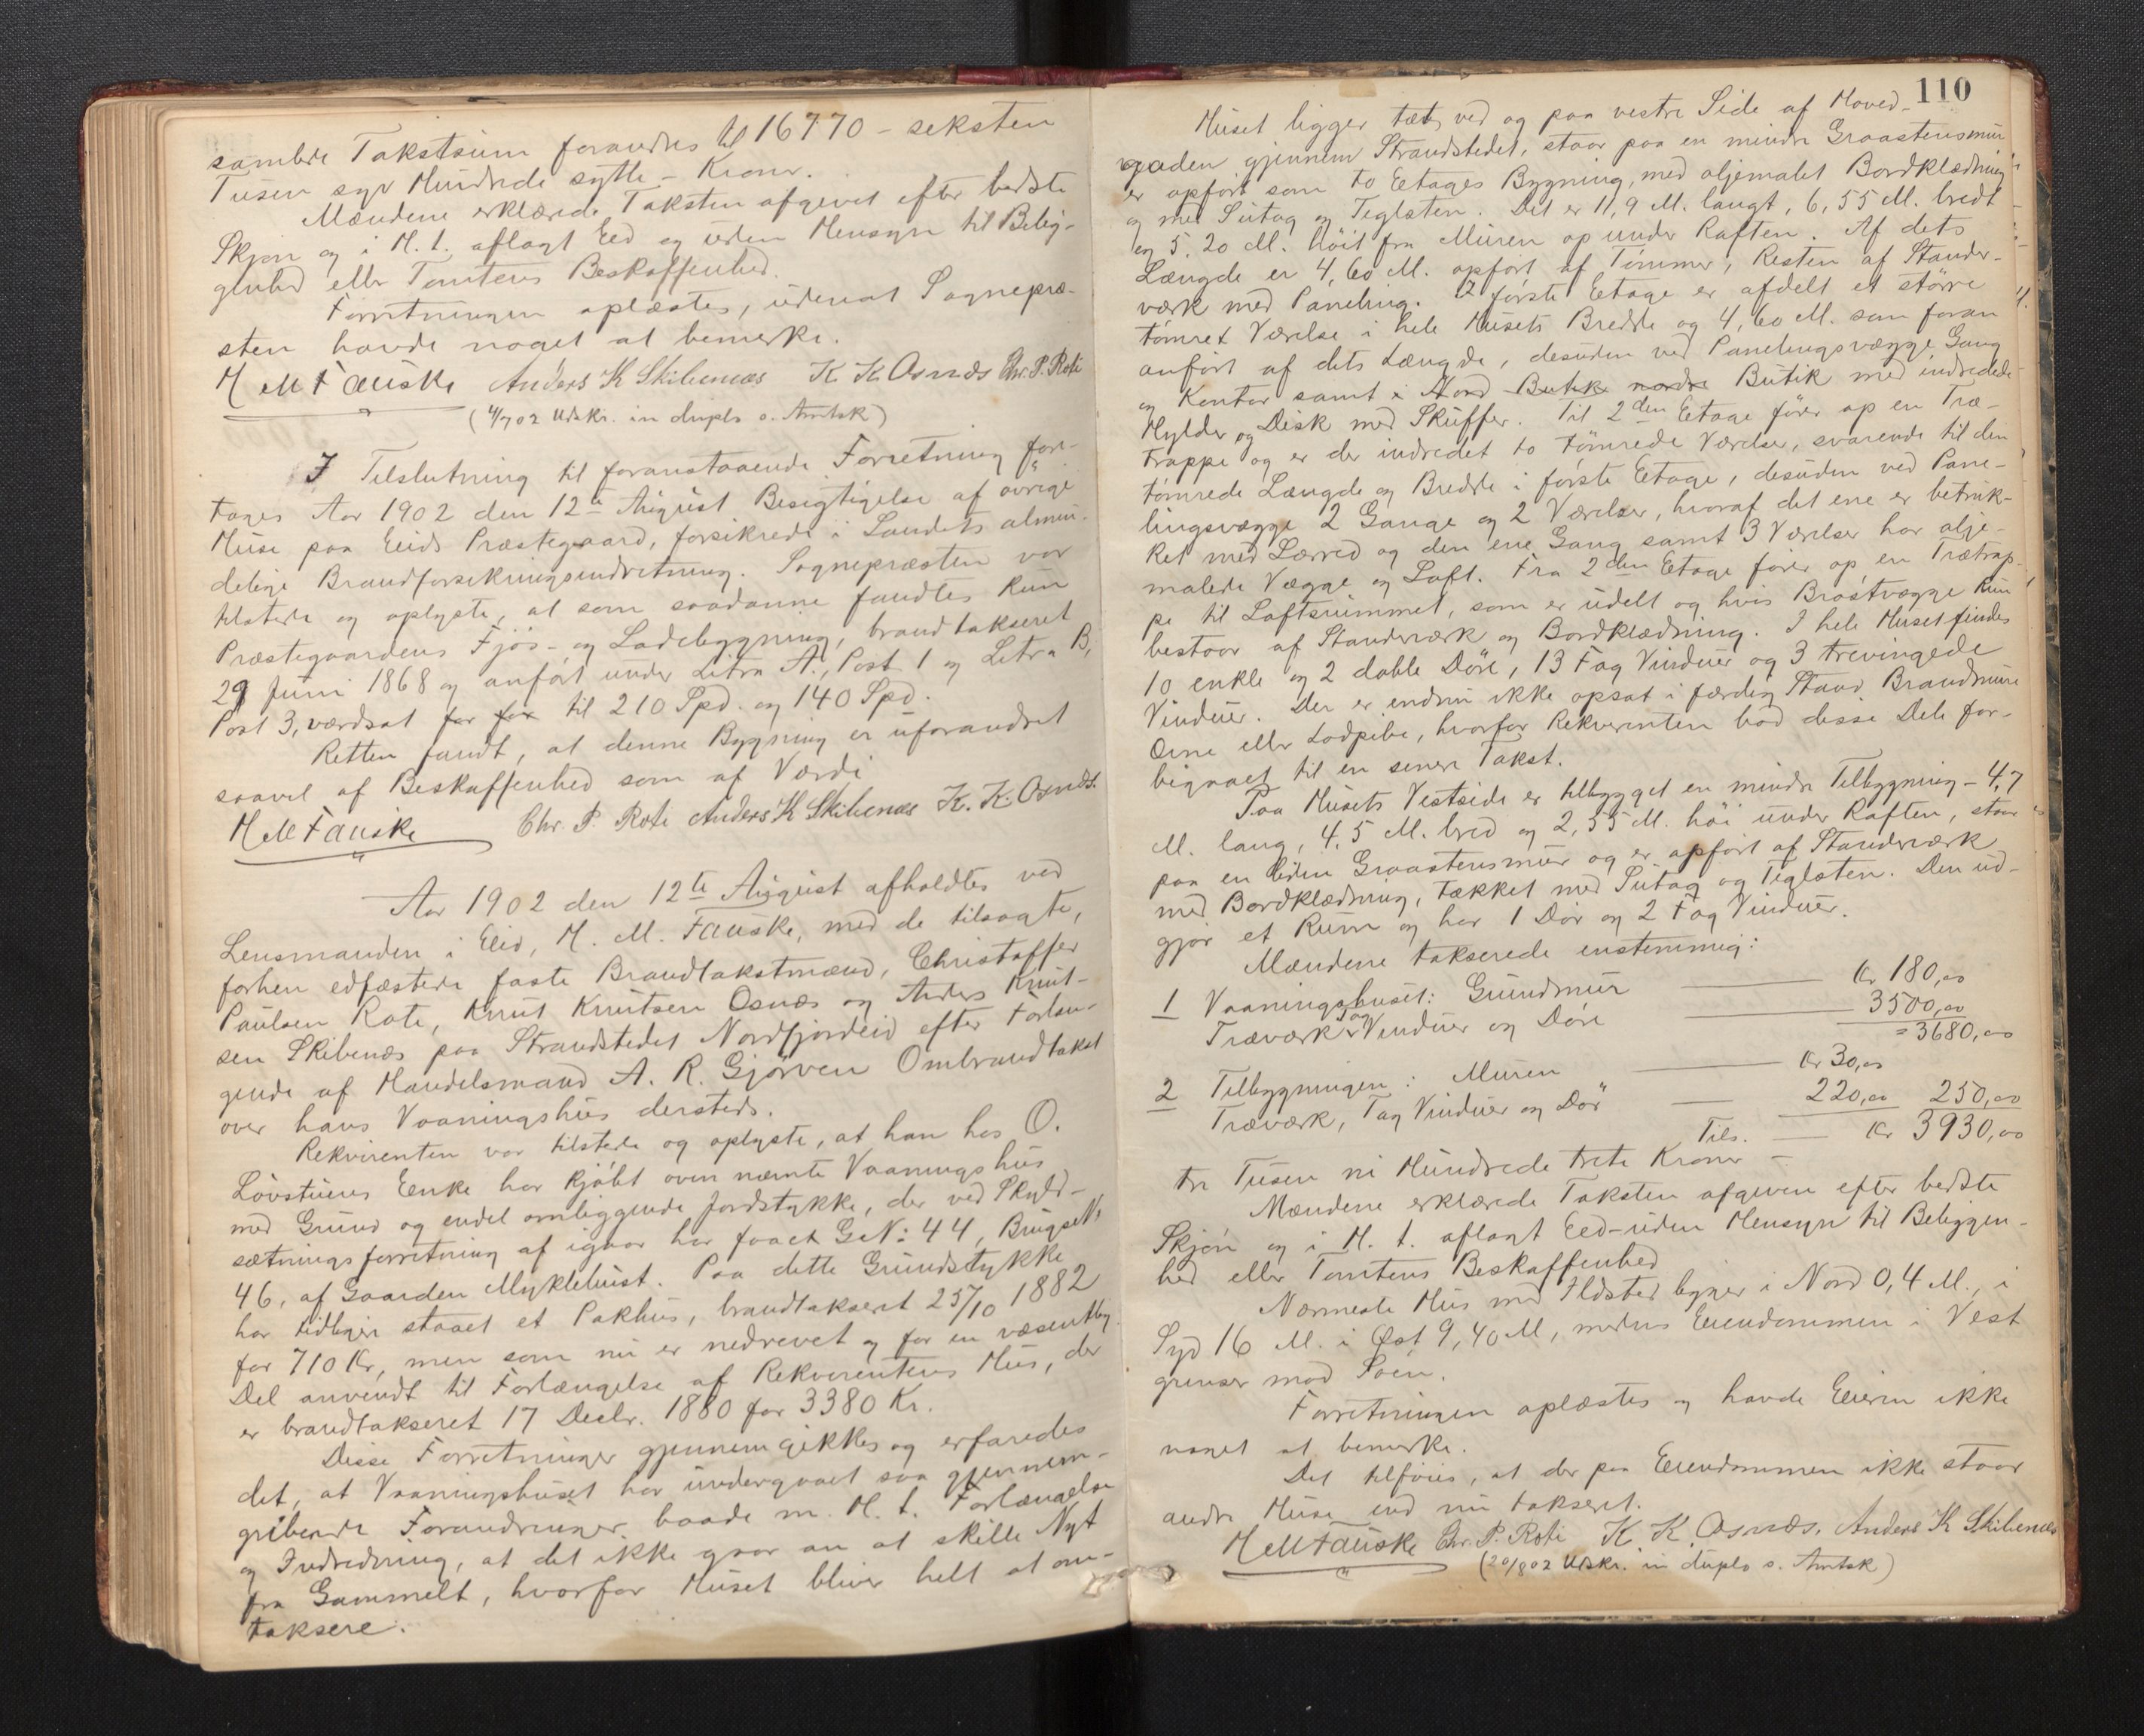 samlede Takstsum forandres til 16770 - seksten
Tusen syv Hundrede sytti - Kroner.
Mændene erklærede Taksten afgivet efter bedste
Skjøn og i H. t. aflagt Eed og uden Hensyn til Belig-
genhed eller Tomtens Beskaffenhed.
Forretningen oplæstes, uden at Sognepræ-
sten havde noget at bemerke.
H M Fauske Anders K Skibenæs K K Osnæs Chr. P. Rote
(4/702 Udskr. in duplo s. Amtsk)
I Tilslutning til foranstaaende Forretning fore-
toges Aar 1902 den 12te August Besigtigelse af øvrige
Huse paa Eids Præstegaard, forsikrede i Landets almin-
delige Brandforsikringsindretning. Sognepræsten var
tilstede og oplyste, at som saadanne fandtes kun
Præstegaardens Fjøs- og Ladebygning, brandtakseret
29 Juni 1868 og anført under Litra A, Post 1 og Litra B,
Post 3, værdsat for for til 210 Spd. og 140 Spd.
Retten fandt, at denne Bygning er uforandret
saavel af Beskaffenhed som af Værdi
H M Fauske Chr. P. Rote Anders K Skibenæs K. K. Osnæs.
Aar 1902 den 12te August afholdtes ved
Lensmanden i Eid, H. M. Fauske, med de tilsagte,
forhen edfæstede faste Brandtakstmænd, Christoffer
Paulsen Rote, Knut Knutsen Osnæs og Anders Knut-
sen Skibenæs paa Strandstedet Nordfjordeid efter Forlan-
gende af Handelsmand A. R. Gjørven Ombrandtakst
over hans Vaaningshus dersteds.
Rekvirenten var tilstede og oplyste, at han hos O.
Løvstuens Enke har kjøbt oven nævnte Vaaningshus
med Grund og endel omliggende Jordstykke, der ved Skyld-
sætningsforretning af igaar har faaet G. N: 44, Brugs N:
46, af Gaarden Myklebust. Paa dette Grundstykke
har tidligere staaet et Pakhus, brandtakseret 25/10 1882
for 710 Kr, men som nu er nedrevet og for en væsentlig
Del anvendt til Forlængelse af Rekvirentens Hus, der
er brandtakseret 17 Decbr. 1880 for 3380 Kr.
Disse Forretninger gjennemgikkes og erfaredes
det, at Vaaningshuset har undergaaet saa gjennem-
gribende Forandringer, baade m. H. t. Forlængelse
og Indredning, at det ikke gaar an at skille Nyt
fra Gammelt, hvorfor Huset bliver helt at om-
taksere.
110
Huset ligger tæt ved og paa vestre Side af Hoved-
gaden gjennem Strandstedet, staar paa en mindre Graastensmur
er opført som to Etages Bygning, med oljemalet Bordklædning
og med Sutag og Teglsten. Det er 11,9 M. langt, 6,55 M. bredt
og 5,20 M. høit fra Muren op under Raften. Af dets
Længde er 4,60 M. opført af Tømmer, Resten af Stander-
værk med Paneling. I første Etage er afdelt et større
tømret Værelse i hele Husets Bredde og 4,60 M. som foran
anført af dets Længde, desuden ved Panelingsvægge Gang
og Kontor samt i Nord Butik nordre Butik med indredede
Hylder og Disk med Skuffer. Til 2den Etage fører op en Træ-
trappe og er der indredet to tømrede Værelser, svarende til den
tømrede Længde og Bredde i første Etage, desuden ved Pane-
lingsvægge 2 Gange og 2 Værelser, hvoraf det ene er betruk-
ket med Lærred og den ene Gang samt 3 Værelser har olje-
malede Vægge og Loft. Fra 2den Etage fører op en Trætrap-
pe til Loftsrummet, som er udelt og hvis Brøstvægge kun
bestaar af Standerværk og Bordklædning. I hele Huset findes
10 enkle og 2 doble Døre, 13 Fag Vinduer og 3 trevingede
Vinduer. Der er endnu ikke opsat i færdig Stand Brandmure
Ovne eller Lodpibe, hvorfor Rekvirenten bad disse Dele for-
bigaaet til en senere Takst.
Paa Husets Vestside er tilbygget en mindre Tilbygning - 4,7
M. lang, 4,5 M. bred og 2,55 M. høi under Raften, staar
paa en liden Graastensmur og er opført af Standerværk
med Bordklædning, tækket med Sutag og Teglsten. Den ud-
gjør et Rum og har 1 Dør og 2 Fag Vinduer.
Mændene takserede enstemmig:
1 Vaaningshuset: Grundmur Kr 180,00
Træværk Tag Vinduer og Døre 3500,00
= 3680,00
2 Tilbygningen: Muren Kr 30,00
Træværk, Tag Vinduer og Dør 220,00 250,00
Tils. Kr 3930,00
tre Tusen ni Hundrede treti Kroner -
Mændene erklærede Taksten afgiven efter bedste
Skjøn og i H. t. aflagt Eed - uden Hensyn til Beliggen-
hed eller Tomtens Beskaffenhed
Nærmeste Hus med Ildsted ligger i Nord 0,4 M., i
Syd 16 M. i Øst 9,40 M, medens Eiendommen i Vest
grenser mod Søen.
Forretningen oplæstes og havde Eieren ikke
noget at bemerke.
Det tilføies, at der paa Eiendommen ikke staar
andre Huse end nu takseret.
H M Fauske Chr. P. Rote K K Osnæs. Anders K Skibenæs
(20/802 Udskr. in duplo s. Amtsk)